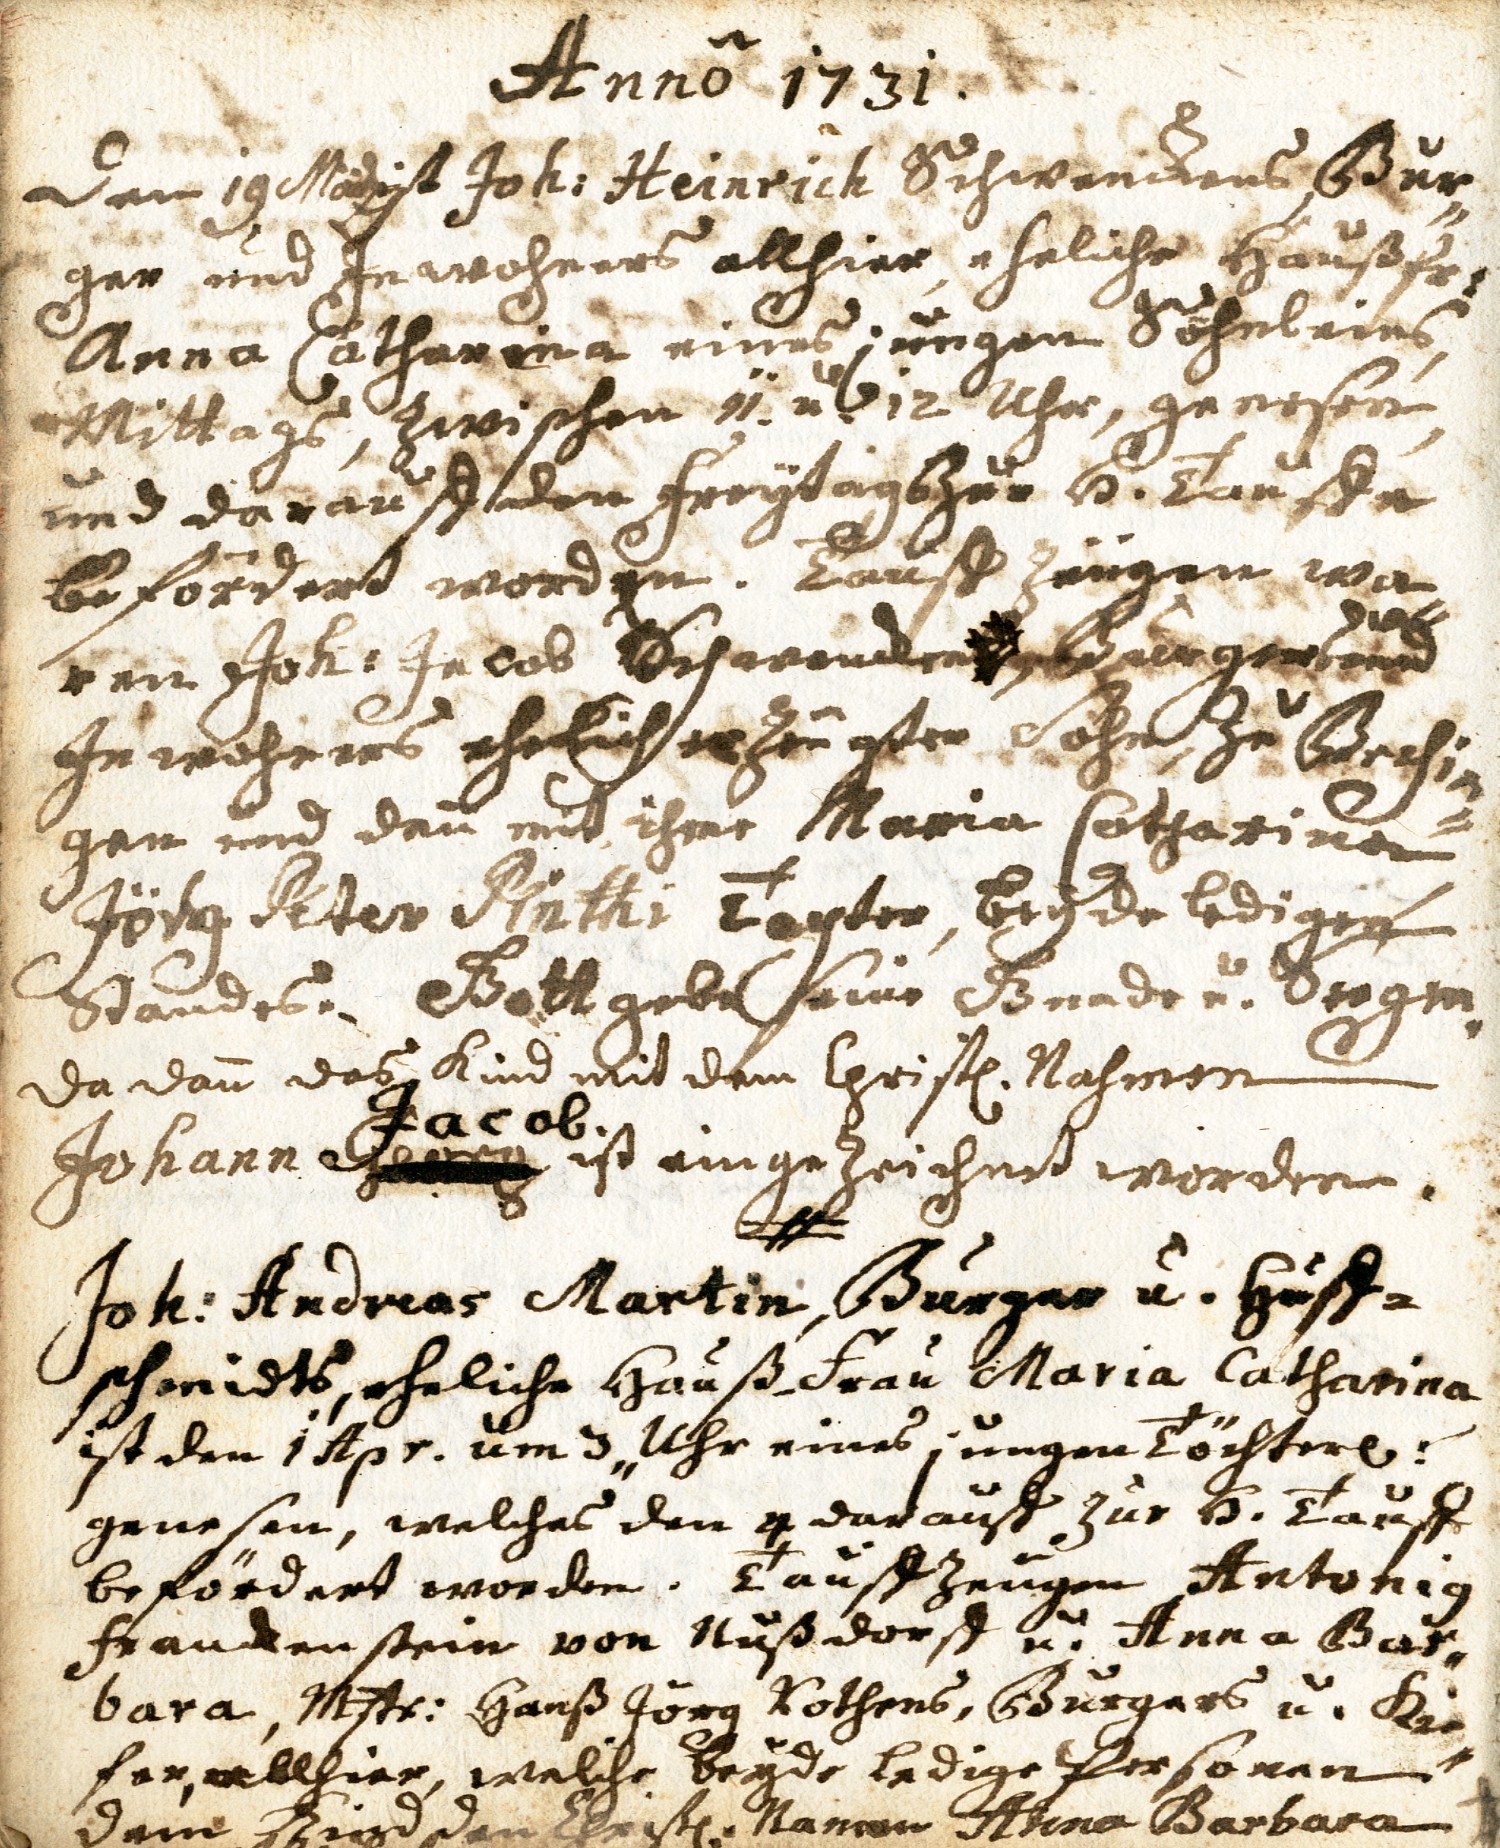 Anno 1731.
Den 19 ist Joh: Heinrich Schwendens, Bur„
ger und Inwohners allhier, eheliche Haußfr:
Anna Catharina eines jungen Söhnleins,
Mittags, zwischen 11. u. 12 Uhr, genesen,
und darauff den Freÿtag zur H. Tauffe
befördert worden. Tauff Zeugen wa„
ren Joh: Jacob Burgers und
Inwohners ehelich erzeugter Sohn, zu
gen und dañ mit ihme Maria Catharina
Jörg Peter Tochter, beÿde ledigen
Standes. Gott gebe seine Gnade u. Seegen.
da dañ das Kind mit dem Christl. Nahmen
Jacob.
Johann ist eingezeichnet worden.
Joh: Andreas Martin, Burger u. Huff-
schmidts, eheliche Hauß-Frau Maria Catharina
ist den 1 Apr. um 3 Uhr eines jungen Töchterl:
genesen, welches den 4 darauff zur H. Tauff
befördert worden. Tauffzeugen Antonig
Franckenstein von Nußdorff u. Anna Bar„
bara, Mstr: Hanß Jörg Rothens, Burgers u. Kie„
fer, allhier, welche beÿde ledige Personen
dem Kind den Christl. Namen Anna Barbara